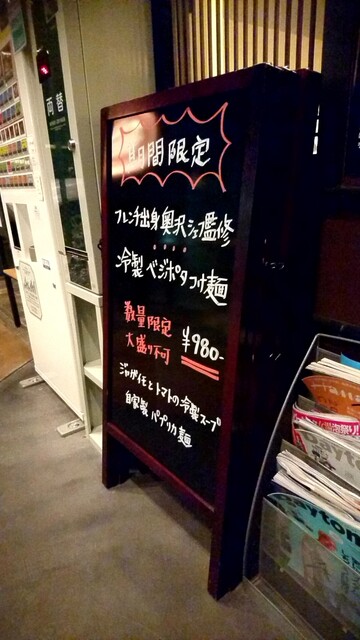 両替
期間限定
フレンチ出身奥沢シェフ監修
冷製ベジポタつけ麺
数量限定
大盛り不可
¥980-
ジャガイモとトマトの冷製スープ
自家製パプリカ麺
Daytona
Daytona